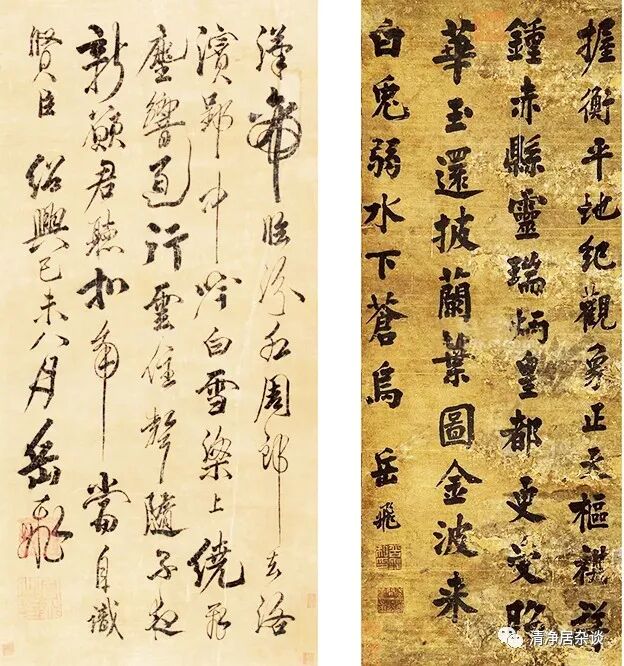 漢帝臨汾水周郎去洛
濱郢中吟白雪梁上繞飛
塵響遏行雲住聲隨子夜
新願君聽扣角當自識
賢臣 紹興己未八月岳飛
握衡平地紀觀象正天樞祺祥
鍾赤縣靈瑞炳皇都更受昭
華玉還披蘭葉圖金波來
白兔弱水下蒼烏 岳飛
清净居杂谈